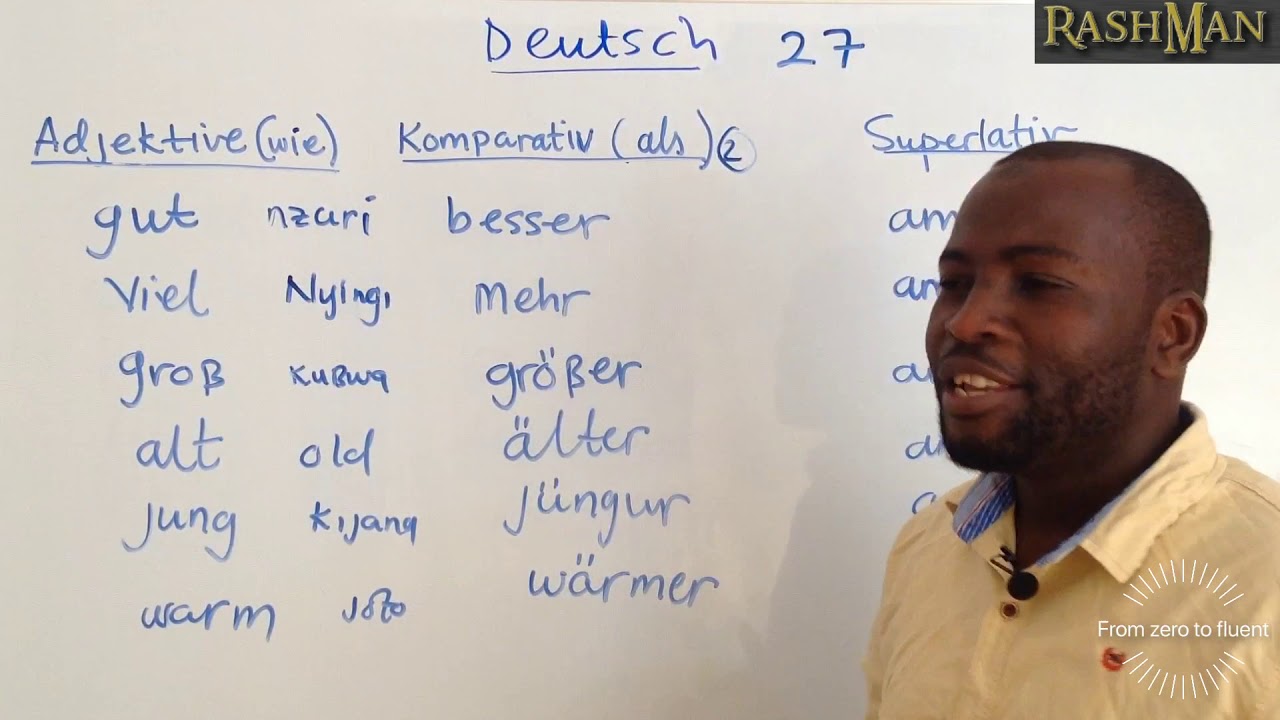 RASHMAN
Deutsch 27
Adjektive (wie) Komparativ (als) 2 Superlativ
gut nzuri besser am
Viel Nyingi mehr am
groß kußwa größer
alt old älter
Jung kijana Jüngur
warm joto wärmer
From zero to fluent